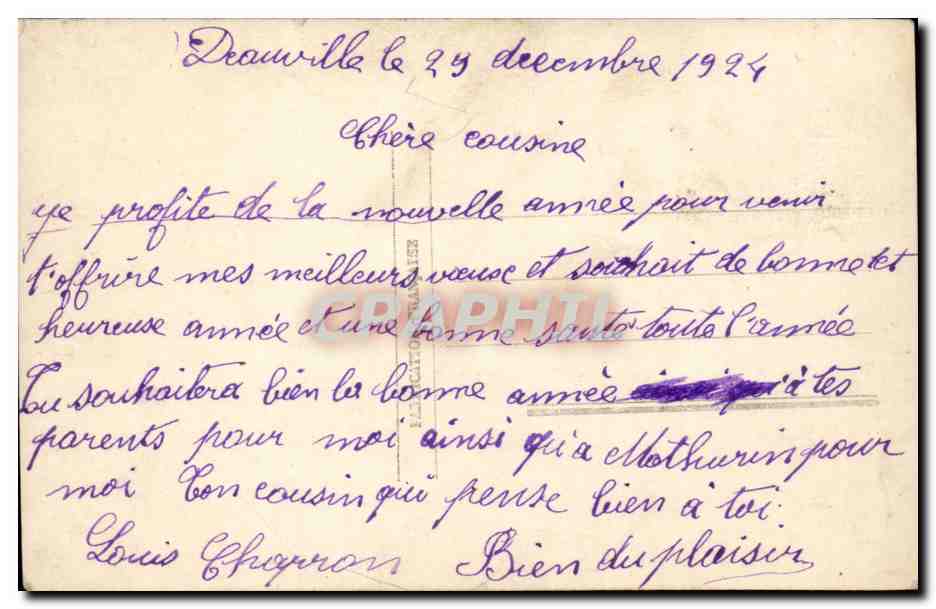 Deauville le 29 decembre 1924
Chère cousine
ye profite de la nouvelle année pour venir
t'offrire mes meilleurs vœuse et souhait de bonne et
heureuse année et une bonne santé toute l'année
Tu souhaitera bien la bonne année à tes
parents pour moi ainsi qu'a Mathurin pour
moi Ton cousin qui pense bien à toi
Louis Charron Bien du plaisir
FABRICATION FRANÇAISE
CPAPHIL